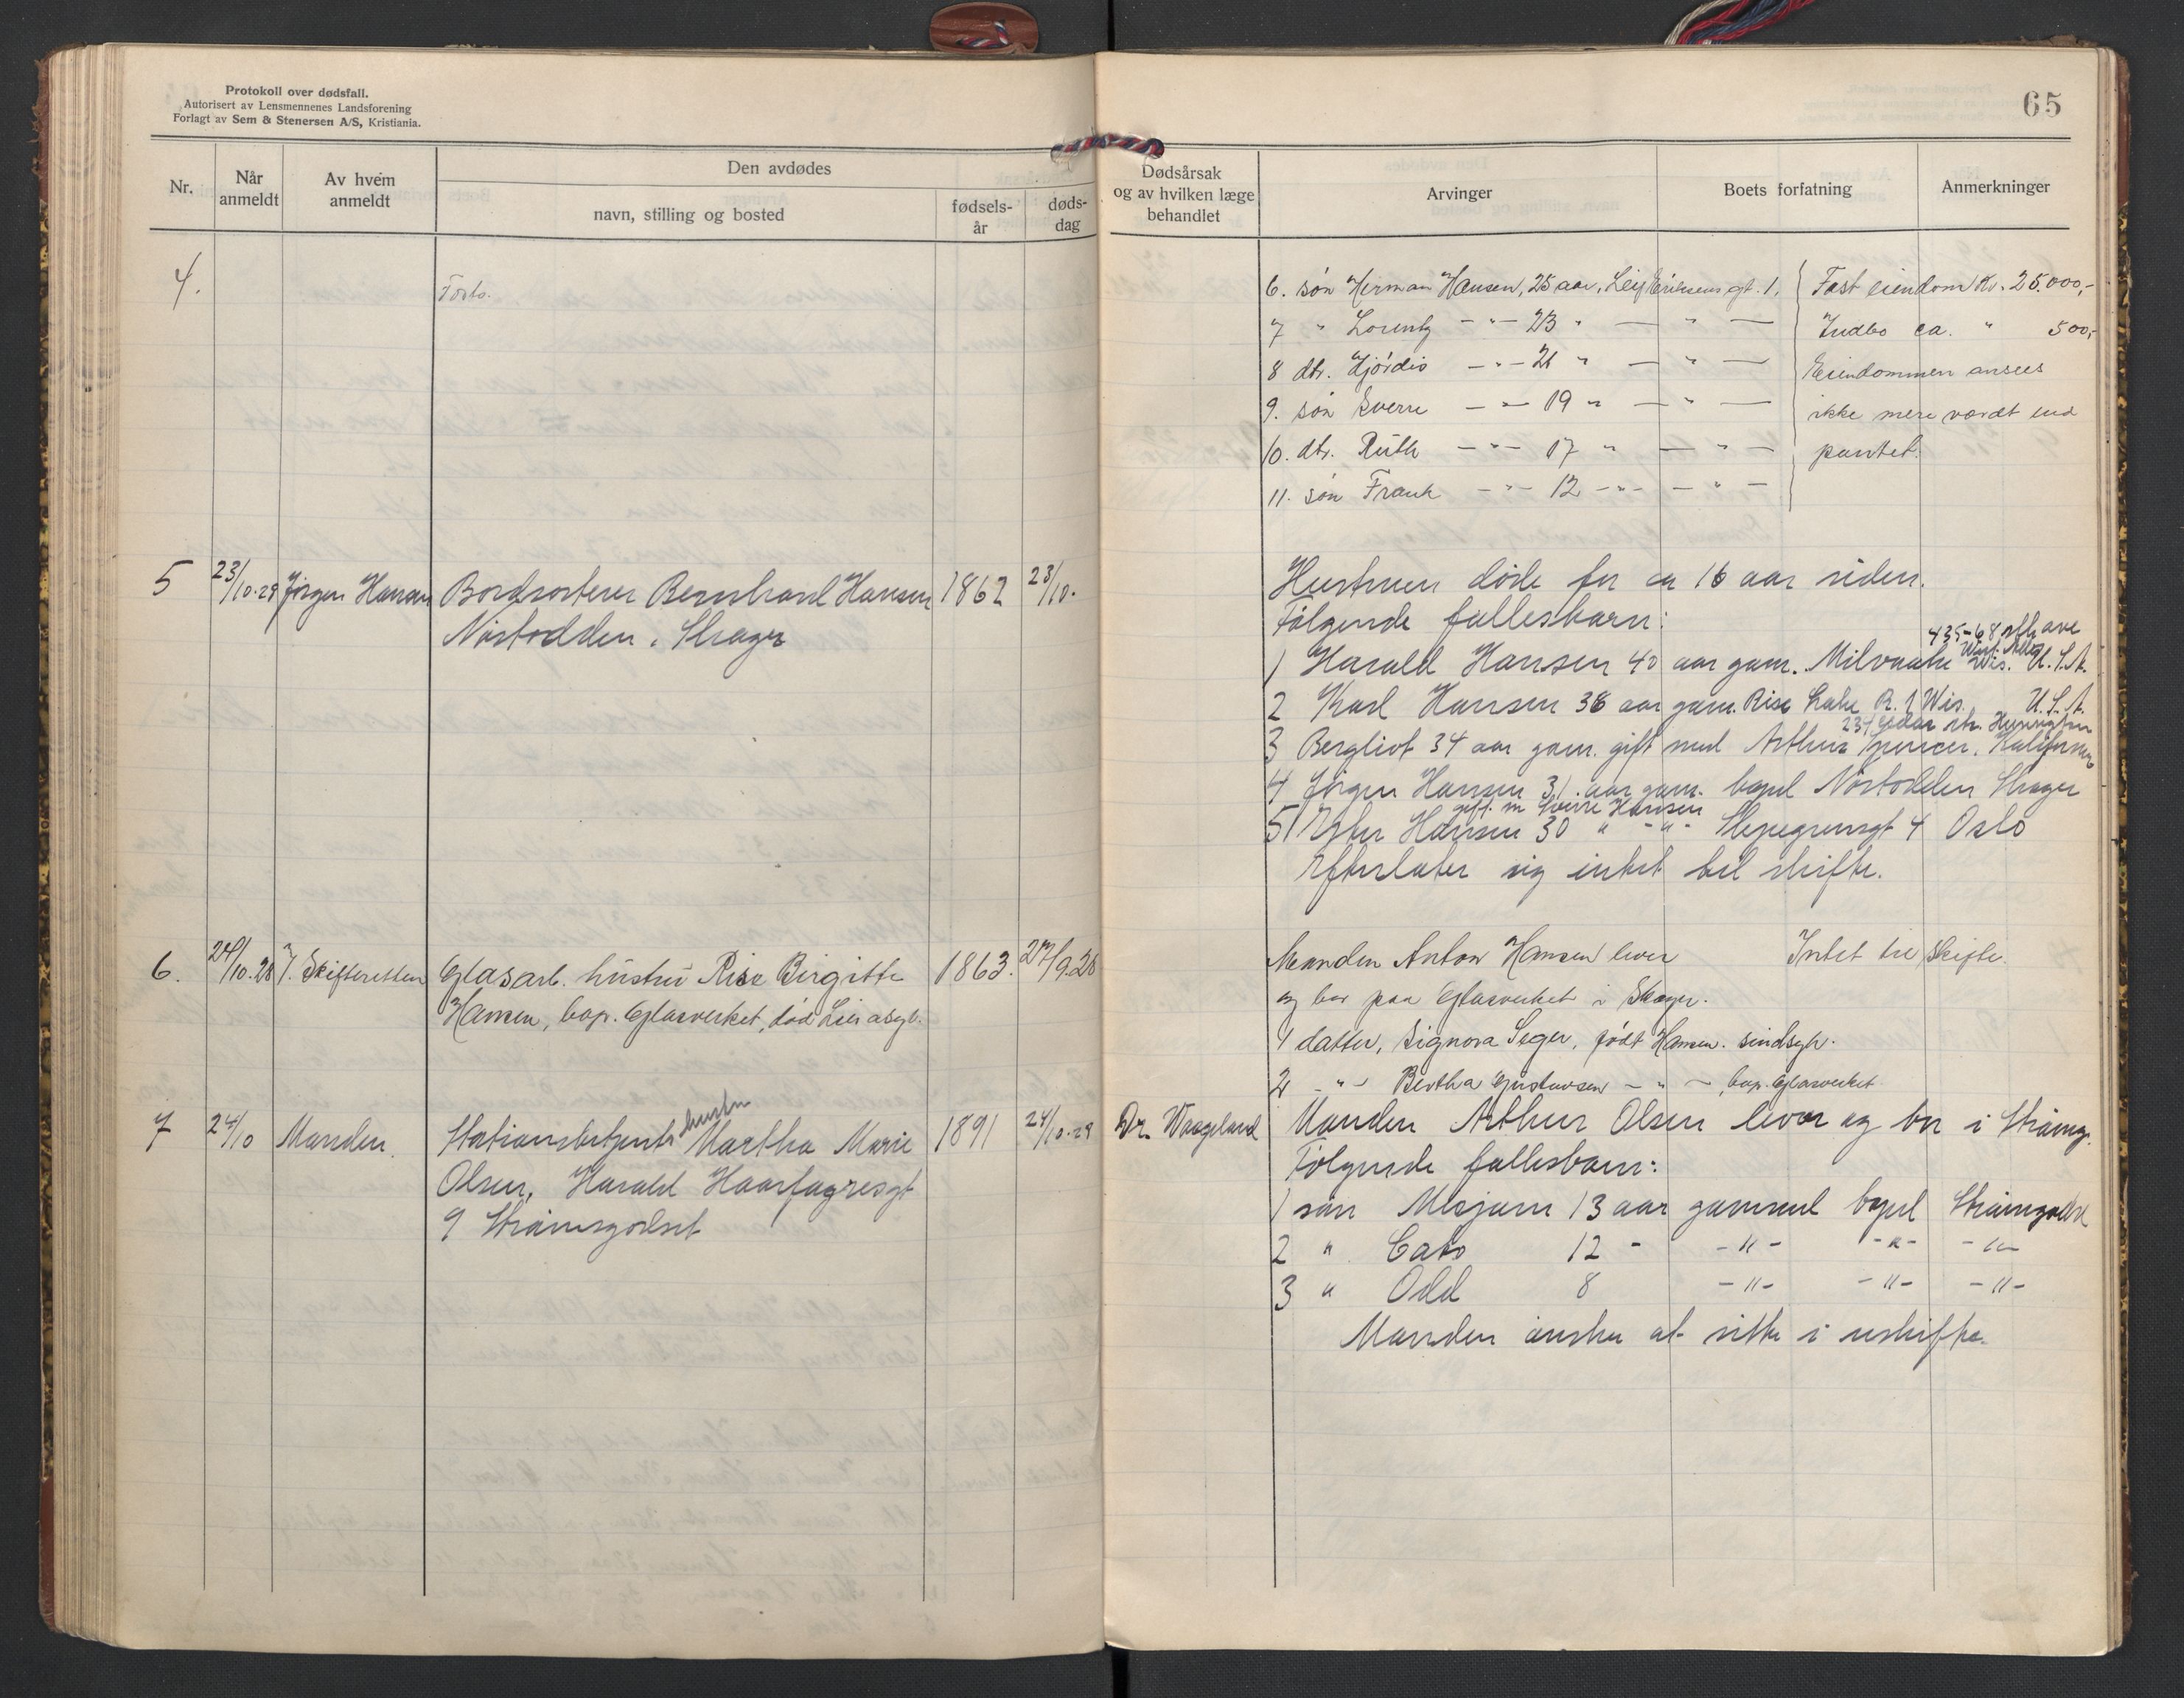 Protokoll over dødsfall.
Autorisert av Lensmennenes Landsforening
Forlagt av Sem & Stenersen A/S, Kristiania.
65
Nr.
Når anmeldt
Av hvem anmeldt
Den avdødes
navn, stilling og bosted
fødsels-år
døds-dag
Dødsårsak og av hvilken læge behandlet
Arvinger
Boets forfatning
Anmerkninger
4. Forts.
6. søn Herman Hansen, 25 aar, Leif Eriksens gt. 1. Fast eiendom Kr. 25.000,-
7 " Lorentz - " - 23 " — " — Indbo ca. " 500,-
8 dtr. Hjørdis - " - 21 " — " — Eiendommen ansees
9. søn Sverre - " - 19 " — " — ikke mere værdt end
10. dtr. Ruth - " - 17 " — " — pantet.
11. søn Frank - " - 12 - " - — " —
5 23/10-29 Jørgen Hansen Bordsorterer Bernhard Hansen 1862 23/10.
Nøstodden, Skoger
Hustruen døde for ca 16 aar siden.
Følgende fællesbarn:
435-68 ave
West Allis
1 Harald Hansen 40 aar gam. Milvauke Wis. U.S.A.
2 Karl Hansen 38 aar gam. Rise Lake R. 1 Wis. U.S.A.
3 Bergliot 34 aar gam. gift med Arthur Spencer.
4 Jørgen Hansen 31. aar gam. bopel Nøstodden Skoger
gift. m Sverre Hansen
5 Ester Hansen 30 " - " - 4 Oslo
Efterlater sig intet til skifte.
6. 24/10-28 J. Skifteretten Glasarb. hustru Rise Birgitte 1863. 27/9.28
Hansen, bop. Glasverket, død Lier asyl.
Manden Anton Hansen lever Intet til skifte.
og bor paa Glasverket i Skoger.
1 datter, Signora Seger, født Hansen. sindsyk.
2 - " - Bertha Gustavsen - " - , bop. Glasverket
7 24/10 Manden. Stationsbetjents hustru Martha Marie 1891 24/10-29 Dr. Waageland
Olsen, Harald Haarfagresgt
9 Strømsgodset
Manden Arthur Olsen lever og bor i Strømg.
Følgende fællesbarn:
1 søn 13 aar gammel bopel Strømgodset
2 " Cato 12 - - " - - " - - " -
3 " Odd 8 - " - - " - - " -
Manden ønsker at sitte i uskifte.